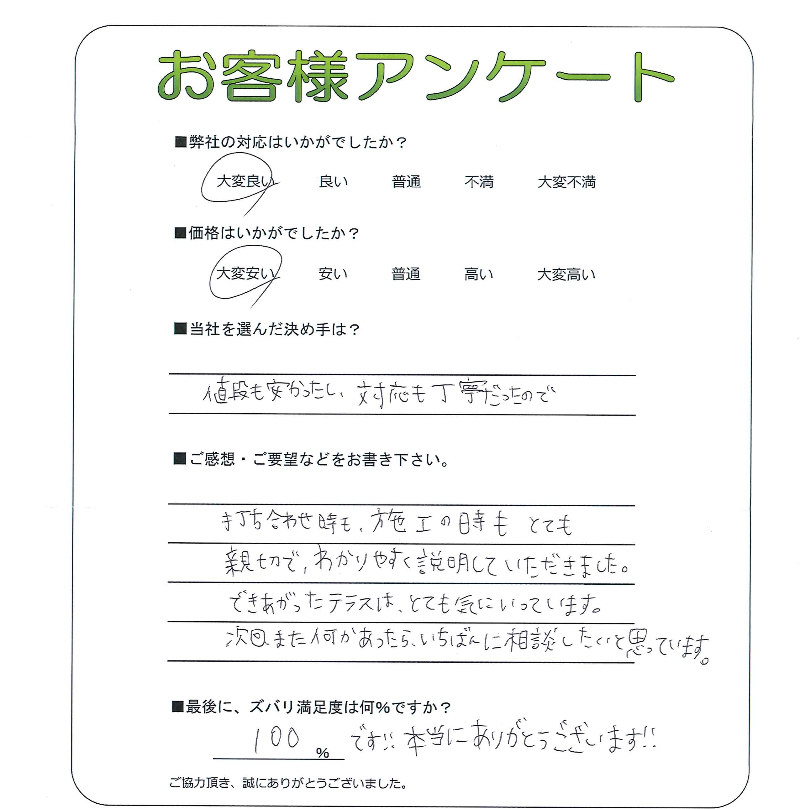 お客様アンケート
■弊社の対応はいかがでしたか？
大変良い 良い 普通 不満 大変不満
■価格はいかがでしたか？
大変安い 安い 普通 高い 大変高い
■当社を選んだ決め手は？
値段も安かったし、対応も丁寧だったので
■ご感想・ご要望などをお書き下さい。
打ち合わせ時も、施工の時も とても
親切で、わかりやすく説明していただきました。
できあがったテラスは、とても気にいっています。
次回、また何かあったら、いちばんに相談したいと思っています。
■最後に、ズバリ満足度は何%ですか？
100 % です!! 本当にありがとうございます!!
ご協力頂き、誠にありがとうございました。